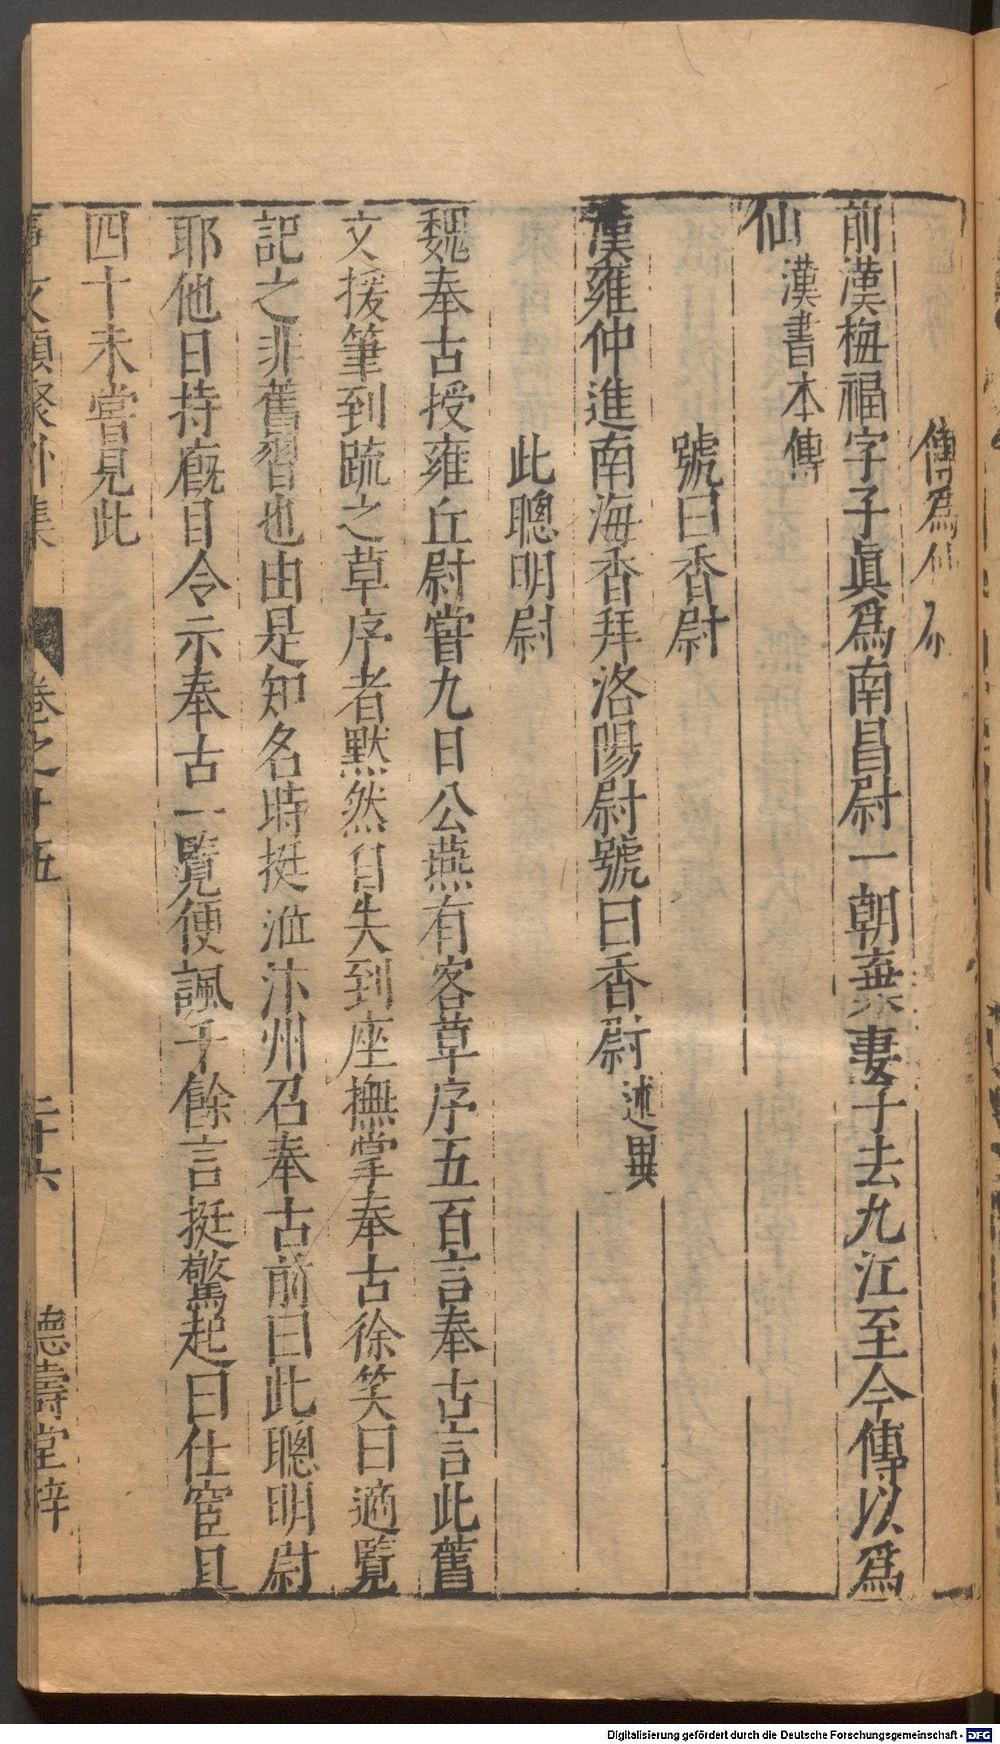 傳爲仙
前漢梅福字子眞爲南昌尉一朝棄妻子去九江至今傳以爲
仙漢書本傳
號曰香尉
漢雍仲進南海香拜洛陽尉號曰香尉述異
此聰明尉
魏奉古授雍丘尉嘗九日公燕有客草序五百言奉古言此舊
文援筆到疏之草序者默然自失到座撫掌奉古徐笑曰適覽
記之非舊習也由是知名時挺涖汴州召奉古前曰此聰明尉
耶他日持廐目令示奉古一覽便諷千餘言挺驚起曰仕宦且
四十未嘗見此
事文類聚外集 卷之十五 二十六 德壽堂梓
Digitalisierung gefördert durch die Deutsche Forschungsgemeinschaft - DFG